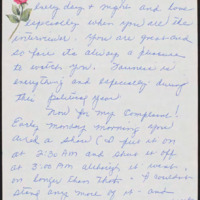 every day + night and love
especially when you are the
interviewer. You are great and
so fair its always a pleasure
to watch you. Fairness is
everything and especially during
this political year
Now for my Complaint!
Early monday morning you
aired a show (I put it on
at 2:30 AM and shut it off
at 3:00 AM although it was
on longer than that. I couldn't
stand any more of it - and